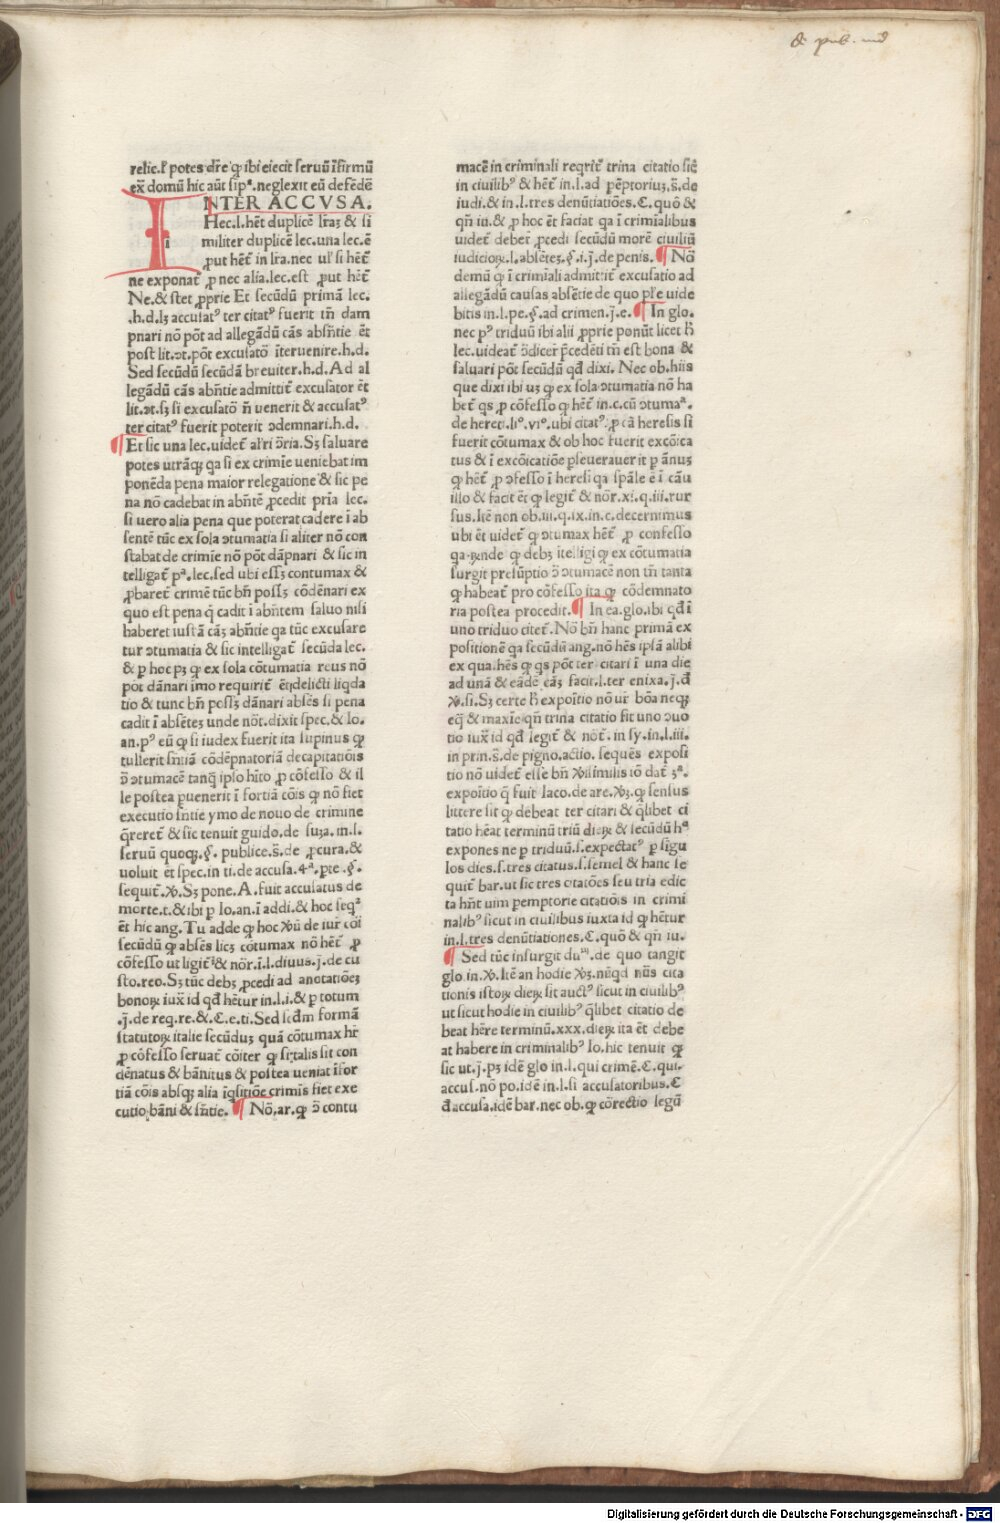 & pub. iud
relic.ľ potes dr̄e qꝫ ibi eiecit seruū īfirmū
ex̄ domū hic aūt sipᵃ.neglexit eū defēdē
INTER ACCVSA.
Hec.l.hēt duplicē lr̄aꝫ & si
militer duplicē lec.una lec.ē
ꝓut hēt̄ in lr̄a.nec ul̓ si hēt̄
ne exponat̄ ꝓ nec alia.lec.est ꝓut hēt̄
Ne.& stet ꝓprie Et secūdū primā lec.
.h.d.lꝫ accusatꝰ ter citatꝰ fuerit tn̄ dam
pnari nō pōt ad allegādū cās absn̄tie ēt
post lit.ↄt.pōt excusatō īteruenire.h.d.
Sed secūdū secūdā breuiter.h.d.Ad al
legādū cās abn̄tie admittit̄ excusator ēt
lit.ↄt.sꝫ si excusatō n̄ uenerit & accusatꝰ
ter citatꝰ fuerit poterit ↄdemnari.h.d.
¶ Et sic una lec.uidet̄ al̓ri ↄ̄ria.Sꝫ saluare
potes utrāqꝫ qa si ex crimīe ueniebat im
ponēda pena maior relegatione & sic pe
na nō cadebat in abn̄tē ꝓcedit pr̄ia lec.
si uero alia pena que poterat cadere ī ab
sentē tūc ex sola ↄtumatia si aliter nō con
stabat de crimīe nō pōt dāpnari & sic in
telligat̄ pᵃ.lec.sed ubi essꝫ contumax &
ꝓbaret̄ crimē tūc bn̄ possꝫ cōdēnari ex
quo est pena q̄ cadit ī abn̄tem saluo nisi
haberet iustā cāꝫ abn̄tie qa tūc excusare
tur ↄtumatia & sic intelligat̄ secūda lec.
& p hoc pꝫ qꝫ ex sola cōtumatia reus nō
pōt dānari īmo requirit̄ ēt delicti liqda
tio & tunc bn̄ possꝫ dānari absēs si pena
cadit ī absēteꝫ unde nōt.dixit spec.& Io.
an.pꝰ eū qꝫ si iudex fuerit ita supinus qꝫ
tullerit sn̄tiā cōdēpnatoriā decapitatiōis
ↄ̄ ↄtumacē tanqꝫ ipso hīto ꝓ cōfesso & il
le postea puenerit ī fortiā cōis qꝫ nō fiet
executio sn̄tie ymo de nouo de crimine
q̄reret̄ & sic tenuit guido.de suꝫa.in.l.
seruū quoqꝫ.§. publice.s̄.de ꝓcura.&
uoluit ēt spec.in ti.de accusa.4ᵃ.pte.§.
sequit̄.ꝟ.Sꝫ pone.A.fuit accusatus de
morte.t.& ibi p Io.an.ī addi.& hoc seqᵃ
ēt hic ang.Tu adde qꝫ hoc ꝟū de iur̄ cōi
secūdū qꝫ absēs licꝫ cōtumax nō hēt̄ ꝓ
cōfesso ut ligit̄ & nōr.ī.l.diuus.j̄.de cu
sto.reo.Sꝫ tūc debꝫ ꝓcedi ad anotatiōeꝫ
bonoꝝ iux̄ id qd̄ hētur in.l.i.& p totum
.j̄.de req.re.& C.e.ti.Sed scd̄m formā
statutoꝝ italie secūduꝫ quā cōtumax hr̄
ꝓ cōfesso seruat̄ cōiter qꝫ si talis sit con
dēnatus & bānitus & postea ueniat īfor
tiā cōis absqꝫ alia īqsitiōe crimīs fiet exe
cutio bāni & sn̄tie. ¶ Nō.ar.qꝫ ↄ̄ contu
macē in criminali reqrit̄ trina citatio sic̄
in ciuilibꝰ & hēt̄ in.l.ad pēptoriuꝫ.s̄.de
iudi.& in.l.tres denūtiatiōes.C.quō &
qn̄ iu.& ꝓ hoc ēt faciat qa ī crimīalibus
uidet̄ deber̄ ꝓcedi secūdū morē ciuiliū
iudicioꝝ.l.absēteꝫ.§.i.j̄.de penis. ¶ Nō
demū qꝫ ī crimīali admittit̄ excusatio ad
allegādū causas absētie de quo pl̄e uide
bitis in.l.pe.§.ad crimen.j̄.e. ¶ In glo.
nec pꝰ triduū ibi alii ꝓprie ponūt licet h̄
lec.uideat̄ ↄ̄dicer̄ p̄cedēti tn̄ est bona &
saluari pōt secūdū qd̄ dixi. Nec ob.hiis
que dixi ibi uꝫ qꝫ ex sola ↄtumatia nō ha
bet̄ qs ꝓ cōfesso qꝫ hēt̄ in.c.cū ↄtumaᵃ.
de hereti.liº.viº.ubi citatꝰ ꝓ cā heresis si
fuerit cōtumax & ob hoc fuerit excōica
tus & ī excōicatiōe pseuerauerit p ānuꝫ
qꝫ hēt̄ ꝓ ↄfesso ī heresi qa spāle ē ī cāu
illo & facit ēt qꝫ legit̄ & nōr.xi.q.iii.rur
sus.Itē non ob.iii.q.ix.in.c.decernimus
ubi ēt uidet̄ qꝫ ↄtumax hēt̄ ꝓ confesso
qa.rn̄de qꝫ debꝫ itelligi qꝫ ex cōtumatia
surgit presūptio ↄ̄ ↄtumacē non tn̄ tanta
qꝫ habeat̄ pro cōfesso ita qꝫ cōdemnato
ria postea procedit. ¶ In ea.glo.ibi qd̄ ī
uno triduo citet̄. Nō bn̄ hanc primā ex
positionē qa secūdū ang.nō hēs ipsā alibi
ex qua.hēs qꝫ qs pōt ter citari ī una die
ad unā & eādē cāꝫ facit.l.ter enixa.j̄.d̄
ꝟ.si.Sꝫ certe h̄ expoītio nō ur̄ bōa neqꝫ
eq̄ & maxīe qn̄ trina citatio fit uno ↄuo
tio iux̄ id qd̄ legit̄ & not̄. in sy.in.l.iii.
in prin.s̄.de pigno.actio. sequēs exposi
tio nō uidet̄ esse bn̄ ꝟisimilis iō dat̄ 3ᵃ.
expoītio q̄ fuit Iaco.de are.ꝟꝫ.qꝫ sensus
littere sit qꝫ debeat ter citari & qlibet ci
tatio hēat terminū triū dieꝝ & secūdū hᵃ
expones ne p triduū.s.expectatꝰ p sigu
los dies.s.tres citatus.s.semel & hanc se
quit̄ bar.ut sic tres citatōes seu tria edic
ta hn̄t uim pemptorie citatiōis in crimi
nalibꝰ sicut in ciuilibus iuxta id qꝫ hētur
in.l.tres denūtiationes.C.quō & qn̄ iu.
¶ Sed tūc insurgit duᵐ.de quo tangit
glo.in.ꝟ.Itē an hodie ꝟꝫ.neqd nūs cita
tionis istoꝝ dieꝝ sit auctꝰ sicut in ciuilibꝰ
ut sicut hodie in ciuilibꝰ qlibet citatio de
beat hēre terminū.xxx.dieꝝ ita ēt debe
at habere in criminalibꝰ Io.hic tenuit qꝫ
sic ut.j̄.pꝫ idē glo in.l.qui crimē.C.qui.
accus.nō po.idē in.l.si accusatoribus.C
d̄ accusa.idē bar.nec ob.qꝫ cōrectio legū
Digitalisierung gefördert durch die Deutsche Forschungsgemeinschaft - DFG